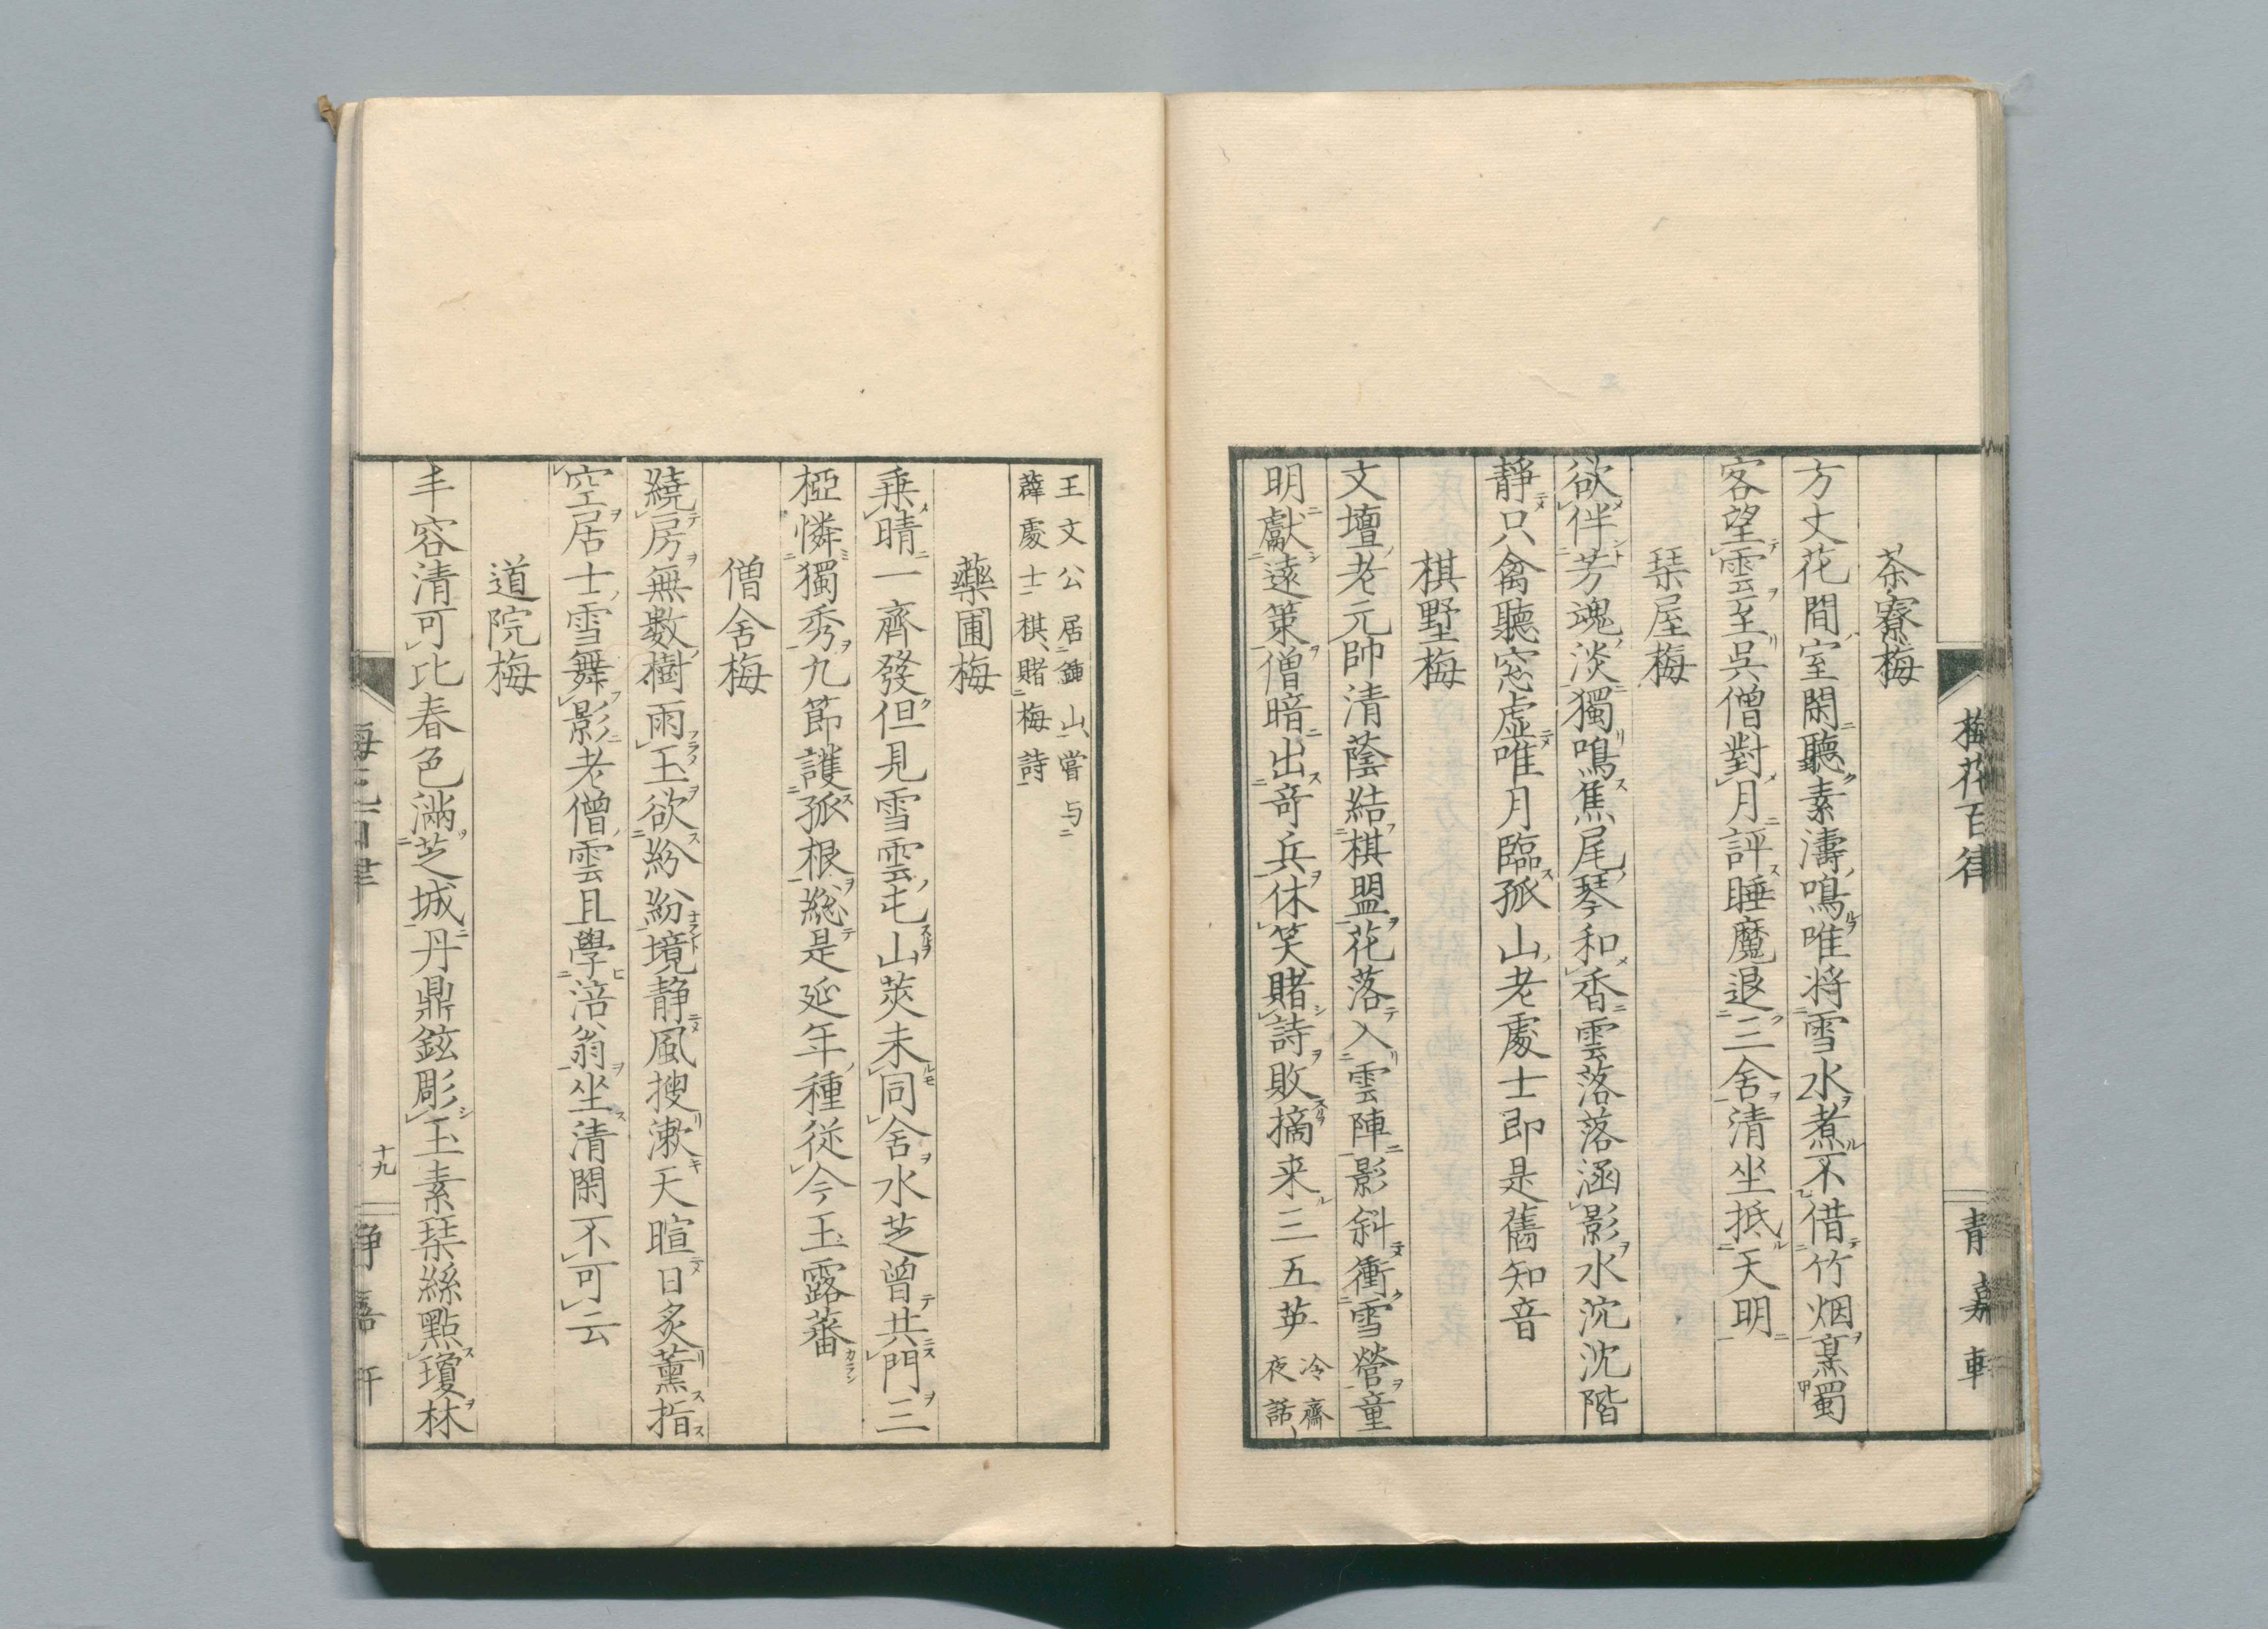 梅花百律
靜嘉軒
茶寮梅
方丈花間室閑聽素濤鳴唯将雪水煮不借竹烟烹蜀
客望雲至呉僧對月評睡魔退三舍清坐抵天明
琹屋梅
欲伴芳魂淡獨鳴焦尾琴和香雲落落涵影水沈沈階
靜只禽聽窓虚唯月臨孤山老處士即是舊知音
棋墅梅
文壇老元帥清蔭結棋盟花落入雲陣影斜衝雪營童
明獻遠策僧暗出竒兵休笑賭詩敗摘来三五英
冷齋
夜話
王文公居鍾山嘗与
薛處士棋賭梅詩
藥圃梅
乗晴一齊發但見雪雲屯山茮未同舍水芝曽共門三
椏憐獨秀九節護孤根総是延年種従今玉露蕃
僧舍梅
繞房無數樹雨玉欲紛紛境静風搜漱天暄日炙薫指
空居士雪舞影老僧雲且學涪翁坐清閑不可云
道院梅
丰容清可比春色滿芝城丹鼎鉉彫玉素琹絲點瓊林
十九